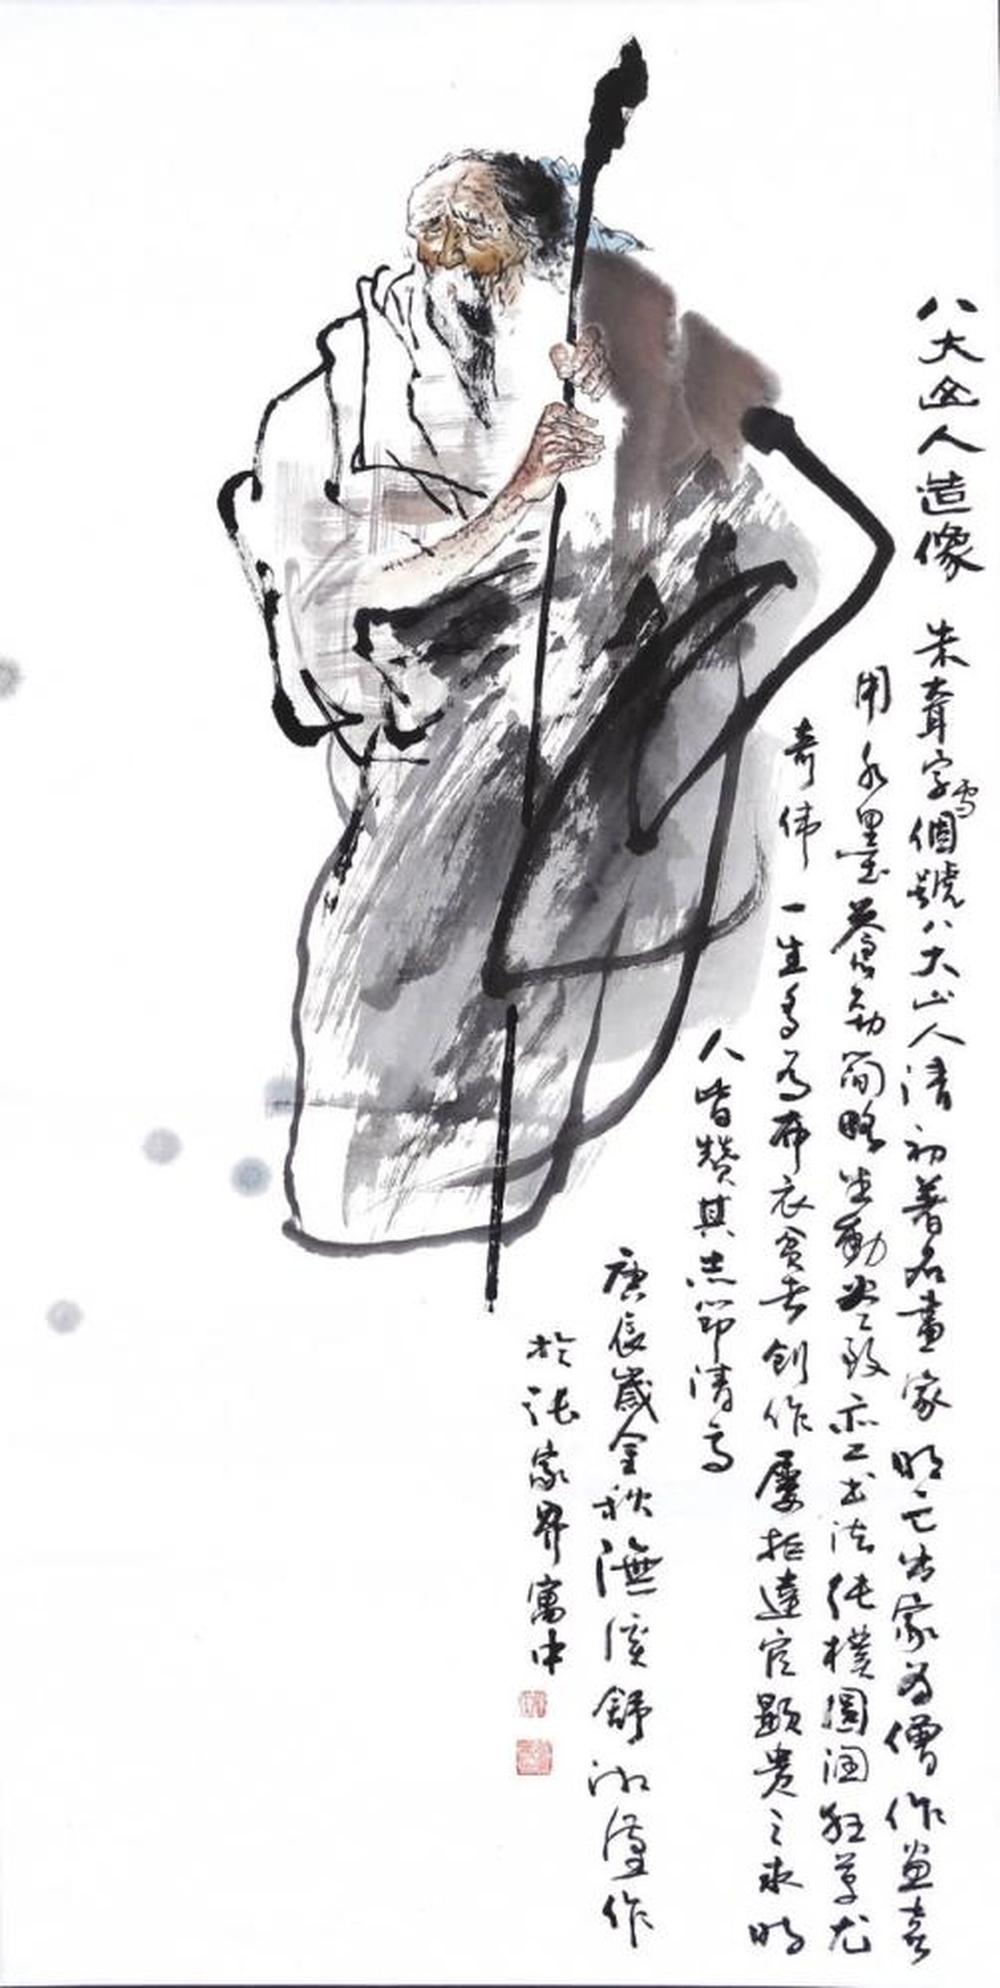 八大山人造像 朱耷字雪個號八大山人清初著名畫家明亡出家為僧作画喜
用水墨蒼勁简略生動尽致亦工书法純樸圓润狂草尤
奇伟一生多为布衣贫士創作屢拒達官顯贵之求時
人皆赞其志節清高
庚辰歲金秋潕溪舒湘漢作
於張家界寓中